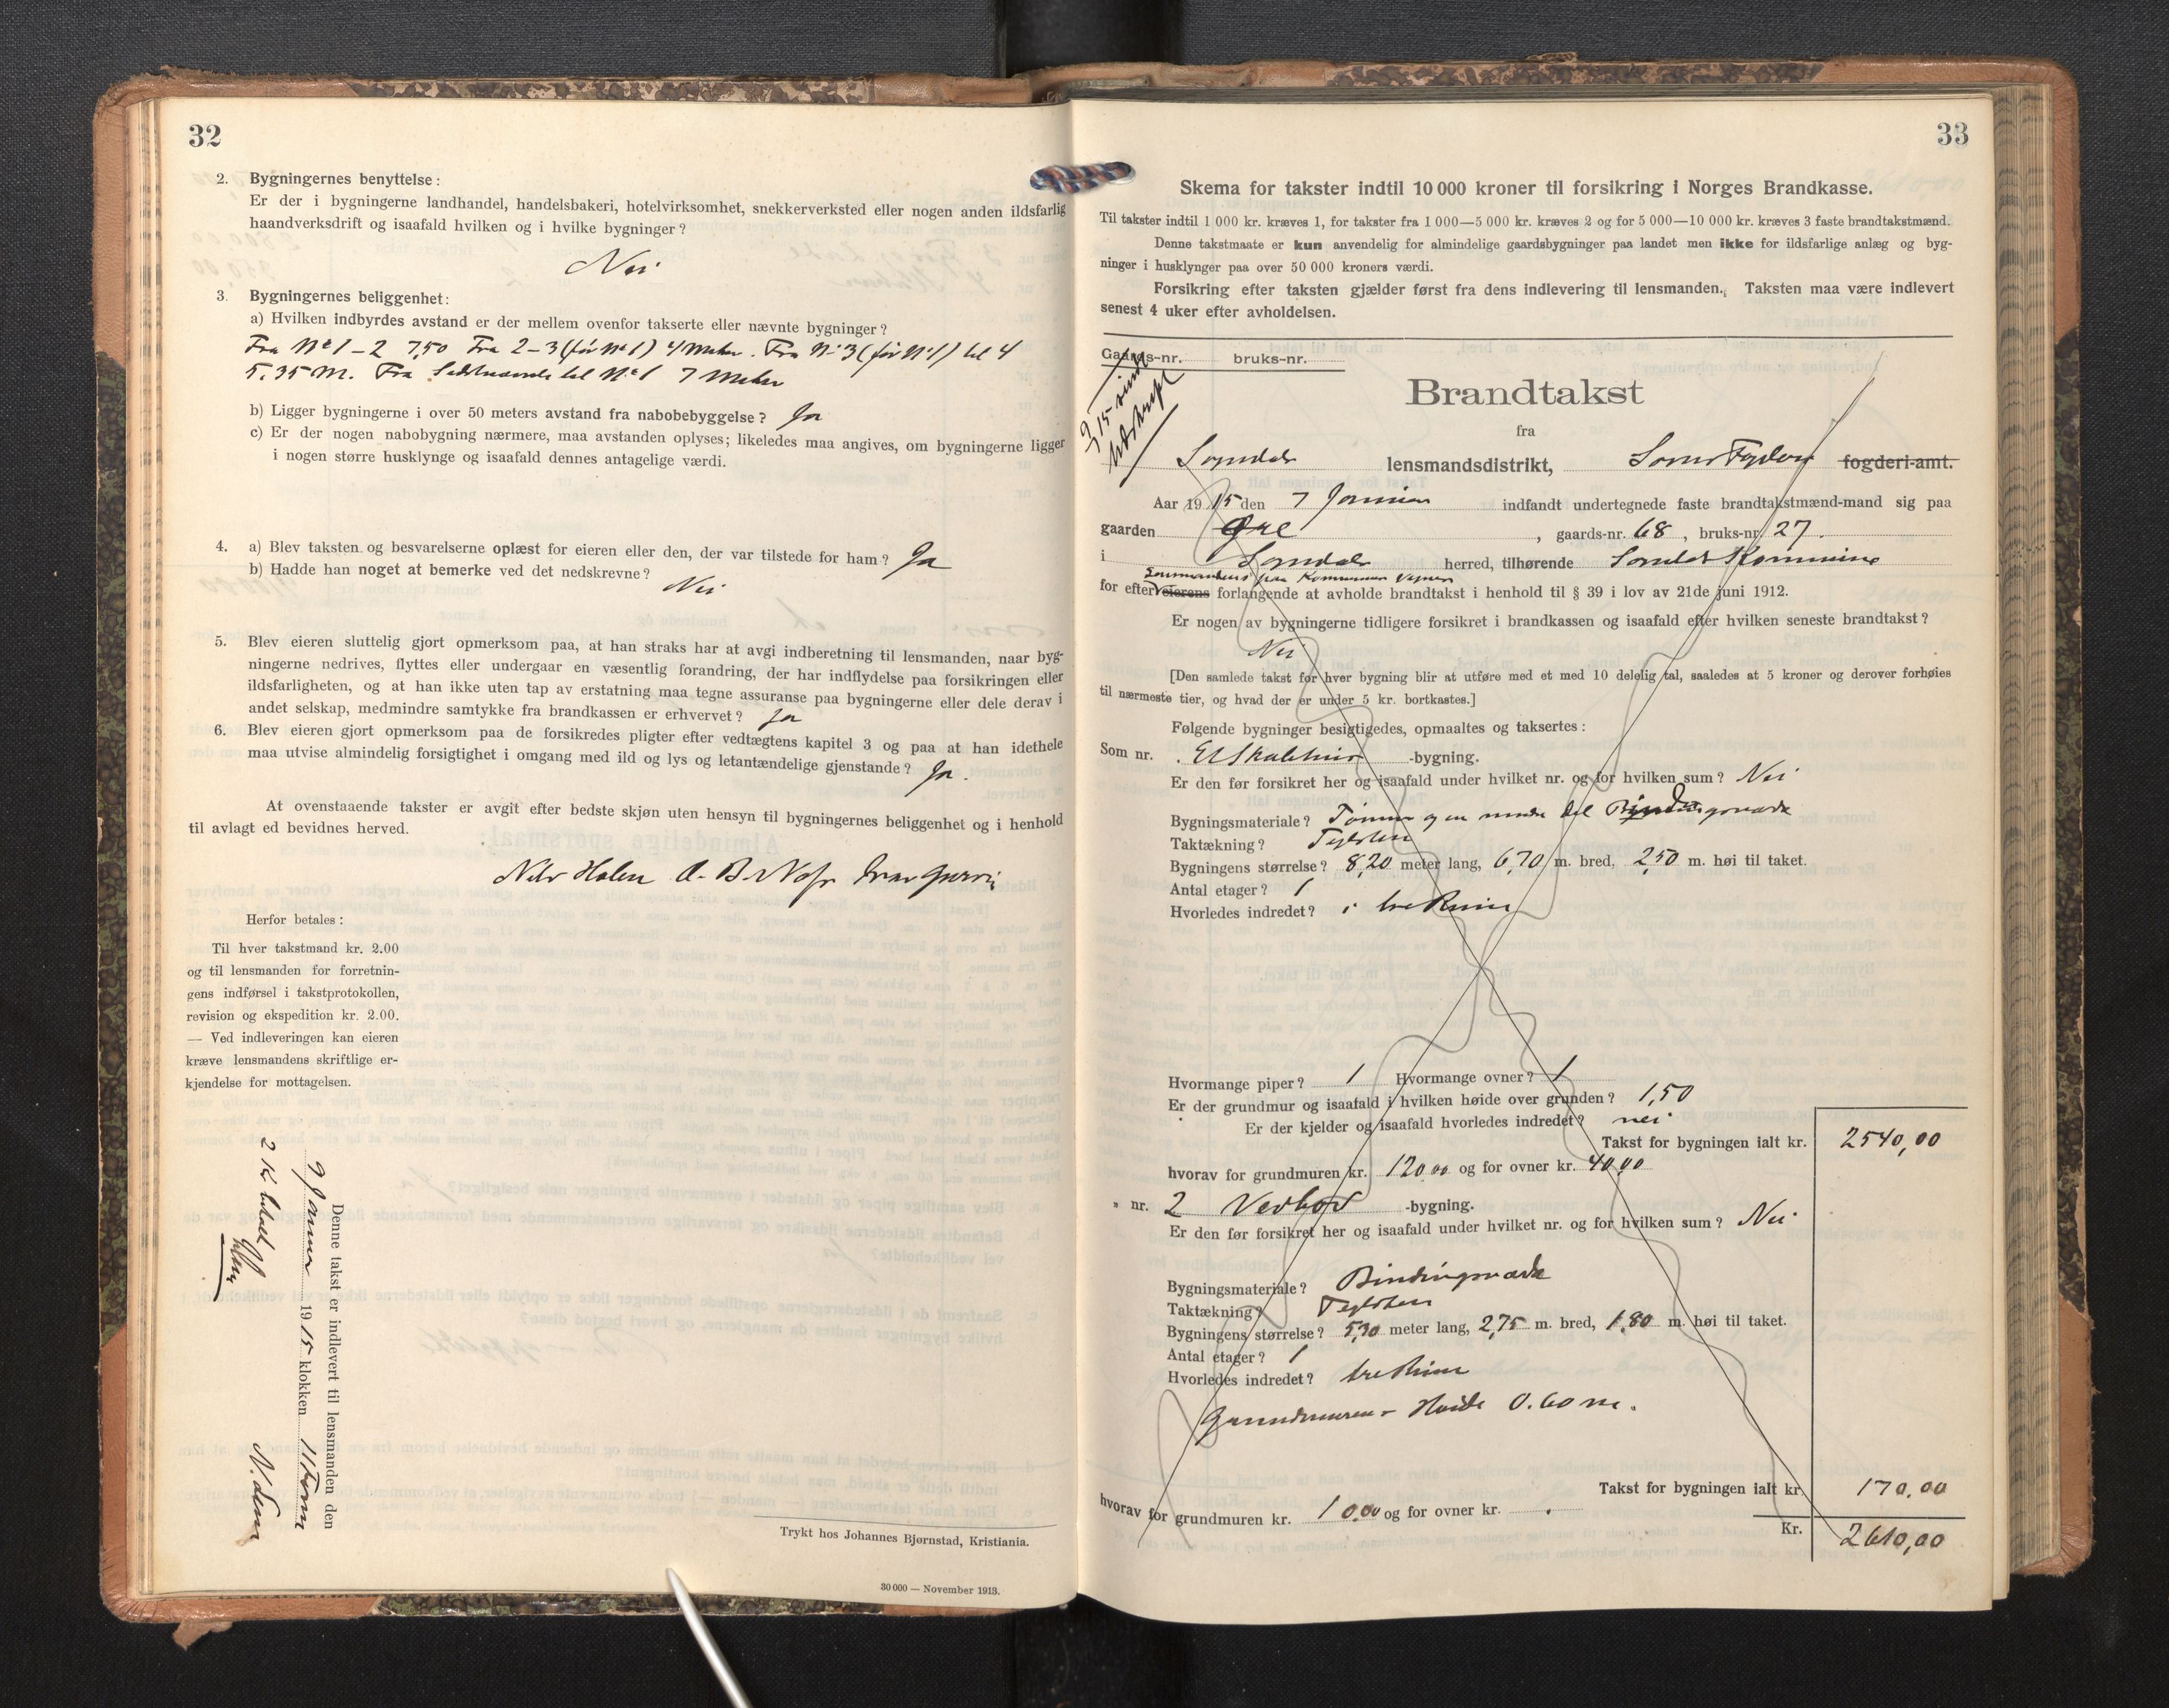 32
2. Bygningernes benyttelse:
Er der i bygningerne landhandel, handelsbakeri, hotelvirksomhet, snekkerverksted eller nogen anden ildsfarlig
haandverksdrift og isaafald hvilken og i hvilke bygninger?
Nei
3. Bygningernes beliggenhet:
a) Hvilken indbyrdes avstand er der mellem ovenfor takserte eller nævnte bygninger?
Fra No 1 – 2 7,50 Fra 2–3 (før No 1) 4 Meter. Fra No 3 (før No 1) til 4
5.35 M. Fra til No 1 7 Meter
b) Ligger bygningerne i over 50 meters avstand fra nabobebyggelse? Ja
c) Er der nogen nabobygning nærmere, maa avstanden oplyses; likeledes maa angives, om bygningerne ligger
i nogen større husklynge og isaafald dennes antagelige værdi.
4. a) Blev taksten og besvarelserne oplæst for eieren eller den, der var tilstede for ham? Ja
b) Hadde han noget at bemerke ved det nedskrevne?
Nei
5. Blev eieren sluttelig gjort opmerksom paa, at han straks har at avgi indberetning til lensmanden, naar byg-
ningerne nedrives, flyttes eller undergaar en væsentlig forandring, der har indflydelse paa forsikringen eller
ildsfarligheten, og at han ikke uten tap av erstatning maa tegne assuranse paa bygningerne eller dele derav i
andet selskap, medmindre samtykke fra brandkassen er erhvervet? Ja
6. Blev eieren gjort opmerksom paa de forsikredes pligter efter vedtægtens kapitel 3 og paa at han idethele
maa utvise almindelig forsigtighet i omgang med ild og lys og letantændelige gjenstande? Ja.
At ovenstaaende takster er avgit efter bedste skjøn uten hensyn til bygningernes beliggenhet og i henhold
til avlagt ed bevidnes herved.
Nils Halen
Herfor betales:
Til hver takstmand kr. 2.00
og til lensmanden for forretnin-
gens indførsel i takstprotokollen,
revision og ekspedition kr. 2.00.
— Ved indleveringen kan eieren
kræve lensmandens skriftlige er-
kjendelse for mottagelsen.
Denne takst er indlevert til lensmanden den
9 Januar 1915 klokken 11 Form
2 K betalt
Trykt hos Johannes Bjørnstad, Kristiania.
30 000 — November 1913.
33
Skema for takster indtil 10 000 kroner til forsikring i Norges Brandkasse.
Til takster indtil 1 000 kr. kræves 1, for takster fra 1 000—5 000 kr. kræves 2 og for 5 000—10 000 kr. kræves 3 faste brandtakstmænd.
Denne takstmaate er kun anvendelig for almindelige gaardsbygninger paa landet men ikke for ildsfarlige anlæg og byg-
ninger i husklynger paa over 50 000 kroners værdi.
Forsikring efter taksten gjælder først fra dens indlevering til lensmanden. Taksten maa være indlevert
senest 4 uker efter avholdelsen.
Gaards-nr. bruks-nr.
Brandtakst
fra
Sogndals lensmandsdistrikt, fogderi-amt.
Aar 1915 den 7 Januar indfandt undertegnede faste brandtakstmænd-mand sig paa
gaarden Øre, gaards-nr. 68, bruks-nr. 27.
i Sogndals herred, tilhørende Sogndal Kommune
Lensmandens paa Kommunens Vegne
for efter eierens forlangende at avholde brandtakst i henhold til § 39 i lov av 21de juni 1912.
Er nogen av bygningerne tidligere forsikret i brandkassen og isaafald efter hvilken seneste brandtakst?
Nei
[Den samlede takst for hver bygning blir at utføre med et med 10 delelig tal, saaledes at 5 kroner og derover forhøies
til nærmeste tier, og hvad der er under 5 kr. bortkastes.]
Følgende bygninger besigtigedes, opmaaltes og taksertes:
Som nr. Et Skolehus -bygning.
Er den før forsikret her og isaafald under hvilket nr. og for hvilken sum? Nei
Bygningsmateriale? Tømmer og en mindre del Bindingsverk
Taktækning? Teglsten
Bygningens størrelse? 8,20 meter lang, 6,70 m. bred, 2,50 m. høi til taket.
Antal etager? 1
Hvorledes indredet? i tre Rum
Hvormange piper? 1 Hvormange ovner? 1
Er der grundmur og isaafald i hvilken høide over grunden? 1,50
Er der kjelder og isaafald hvorledes indredet? nei
Takst for bygningen ialt kr. 2540,00
hvorav for grundmuren kr. 120.00 og for ovner kr. 40,00
„ nr. 2 Vedbod -bygning.
Er den før forsikret her og isaafald under hvilket nr. og for hvilken sum? Nei
Bygningsmateriale? Bindingsverk
Taktækning? Teglsten
Bygningens størrelse? 5,30 meter lang, 2,75 m. bred, 1,80 m. høi til taket.
Antal etager? 1
Hvorledes indredet? tre Rum
Grundmurens Høide 0.60 m.
Takst for bygningen ialt kr. 170,00
hvorav for grundmuren kr. 10,00 og for ovner kr.
Kr. 2610,00